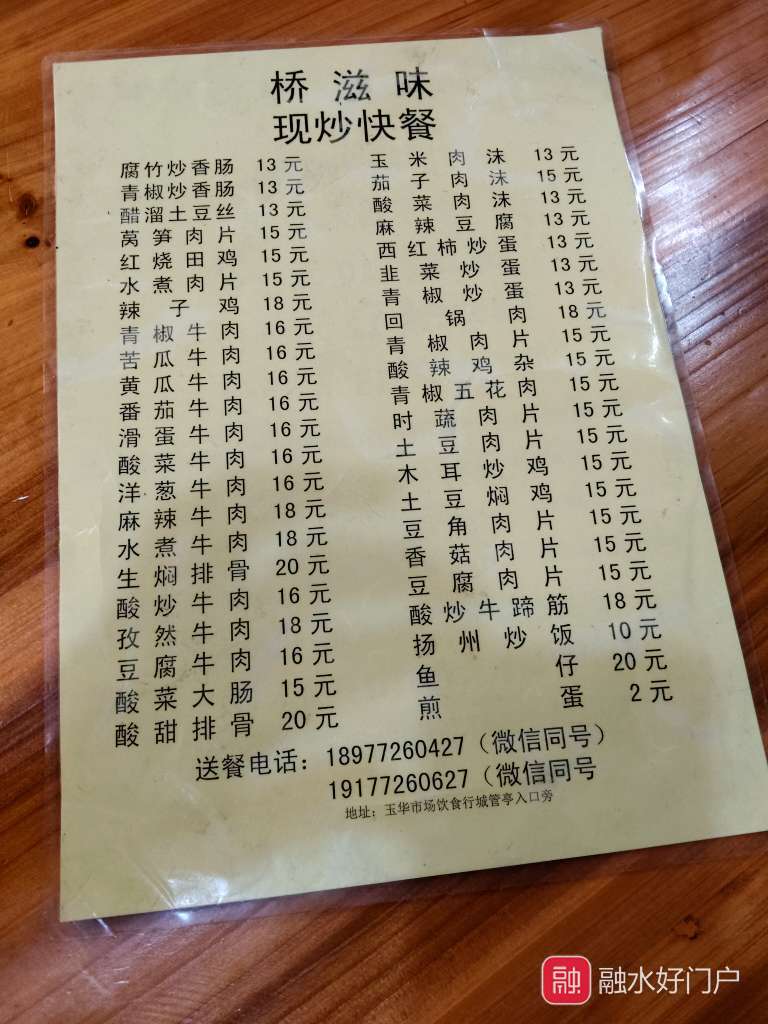 桥滋味
现炒快餐
腐竹炒香肠 13元
青椒炒香肠 13元
醋溜土豆丝 13元
莴笋肉片 15元
红烧田鸡 15元
水煮肉片 15元
辣子鸡 18元
青椒牛肉 16元
苦瓜牛肉 16元
黄瓜牛肉 16元
番茄牛肉 16元
滑蛋牛肉 16元
酸菜牛肉 16元
洋葱牛肉 16元
麻辣牛肉 18元
水煮牛肉 18元
生焖排骨 20元
酸炒牛肉 16元
孜然牛肉 18元
豆腐牛肉 16元
酸菜大肠 15元
酸甜排骨 20元
玉米肉沫 13元
茄子肉沫 15元
酸菜肉沫 13元
麻辣豆腐 13元
西红柿炒蛋 13元
韭菜炒蛋 13元
青椒炒蛋 13元
回锅肉 18元
青椒肉片 15元
酸辣鸡杂 15元
青椒五花肉 15元
时蔬肉片 15元
土豆肉片 15元
木耳炒鸡 15元
土豆焖鸡 15元
豆角肉片 15元
香菇肉片 15元
豆腐肉片 15元
酸炒牛蹄筋 18元
扬州炒饭 10元
鱼仔 20元
煎蛋 2元
送餐电话：18977260427（微信同号）
19177260627（微信同号
地址：玉华市场饮食行城管亭入口旁
融 融水好门户